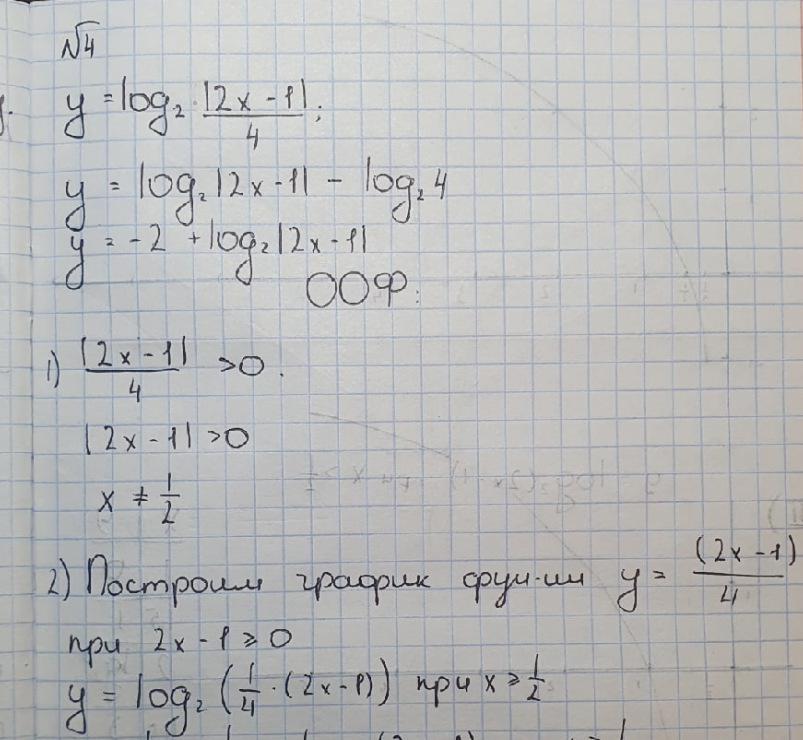 №4
y = log₂ · |2x - 1|/4 ;
y = log₂ |2x - 1| - log₂ 4
y = -2 + log₂ |2x - 1|
ООФ:
1) |2x - 1|/4 > 0.
|2x - 1| > 0
x ≠ 1/2
2) Построим график фун-ии y = (2x - 1)/4
при 2x - 1 ≥ 0
y = log₂ (1/4 · (2x - 1)) при x ≥ 1/2